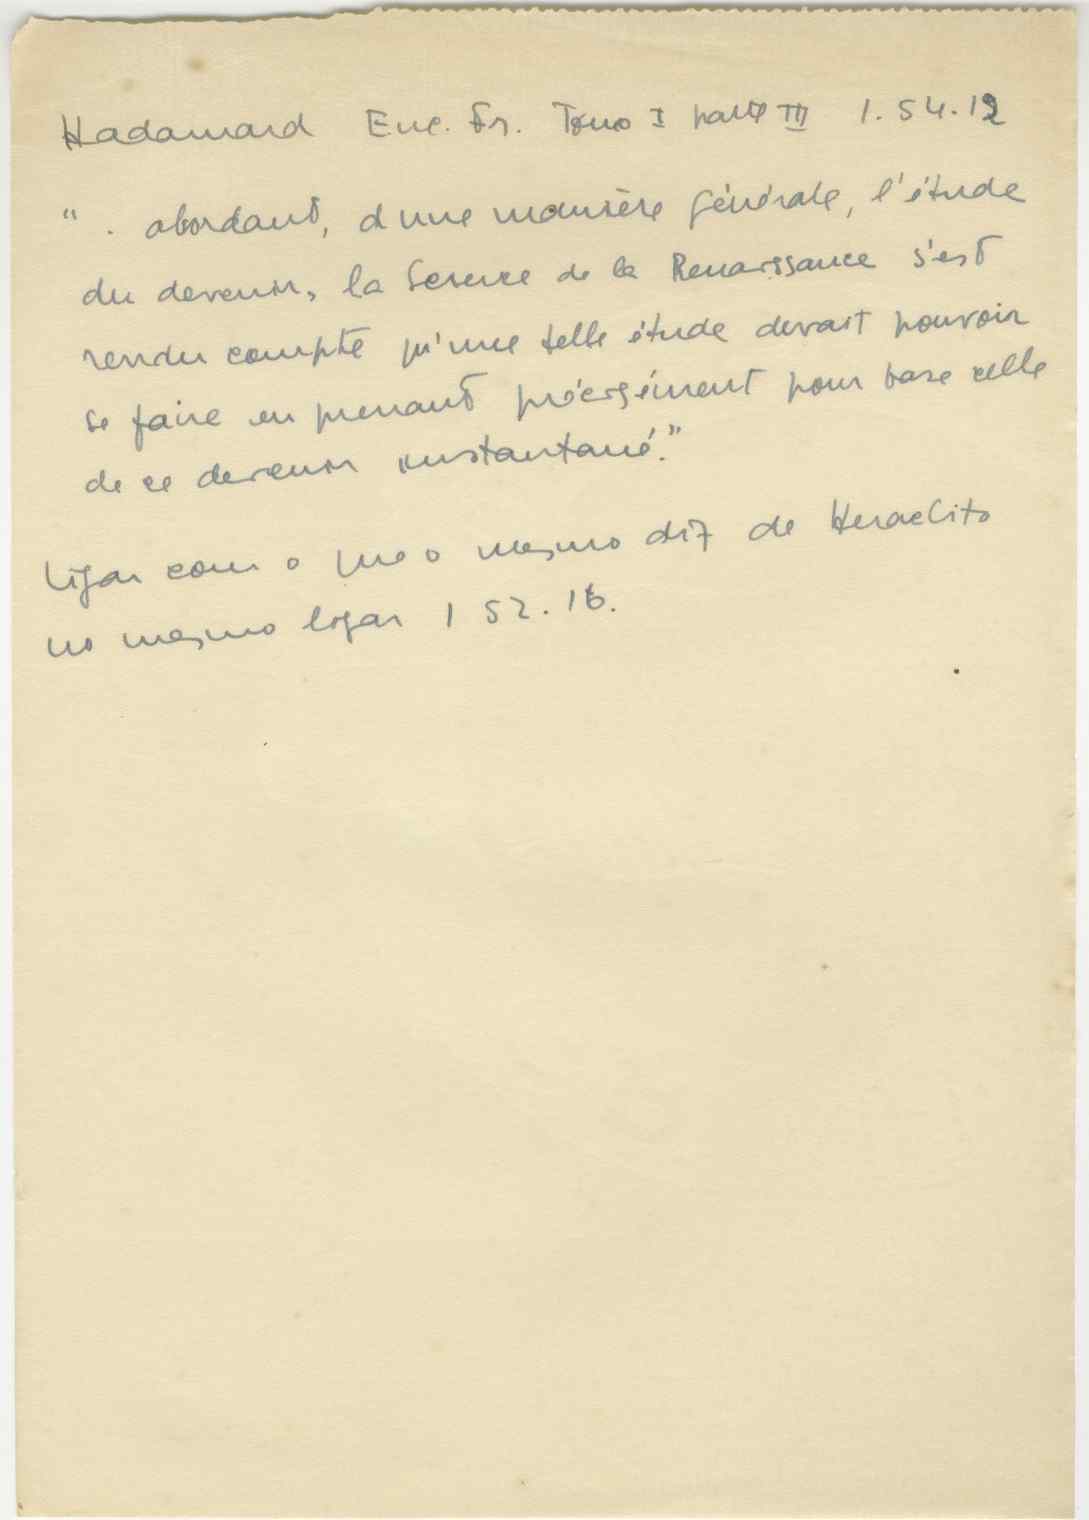 Hadamard Enc. Fr. Tomo I parte III 1.54.12
" . abordant, d'une manière générale, l'étude
du devenir, la Science de la Renaissance s'est
rendu compte qu'une telle étude devait pouvoir
se faire en prenant précisément pour base celle
de ce devenir instantané."
Ligar com o que o mesmo diz de Heraclito
no mesmo logar 1 52.16.